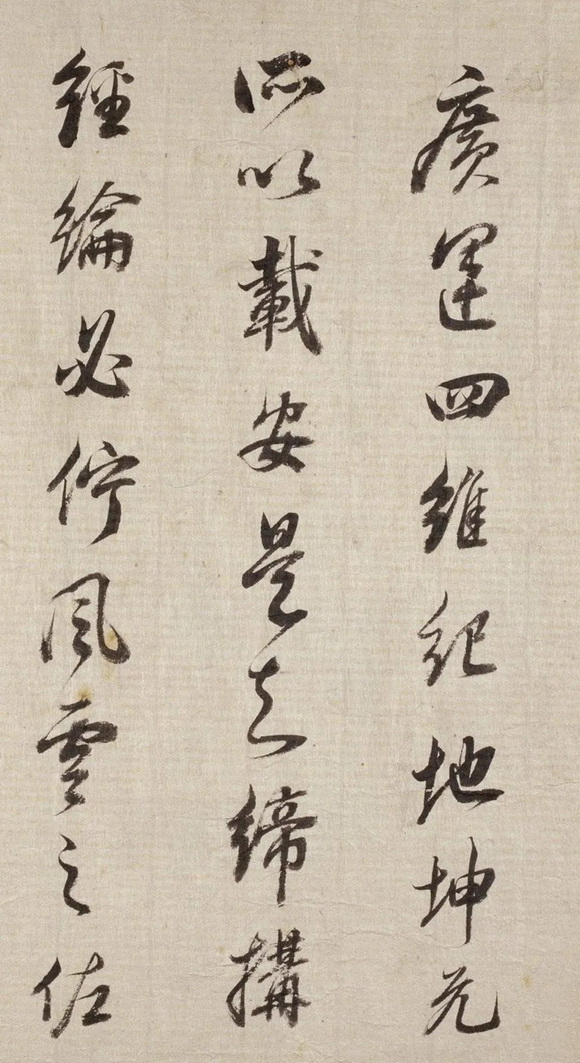 廣運四維紀地坤元
所以載安是知締搆
經綸必佇風雲之佐